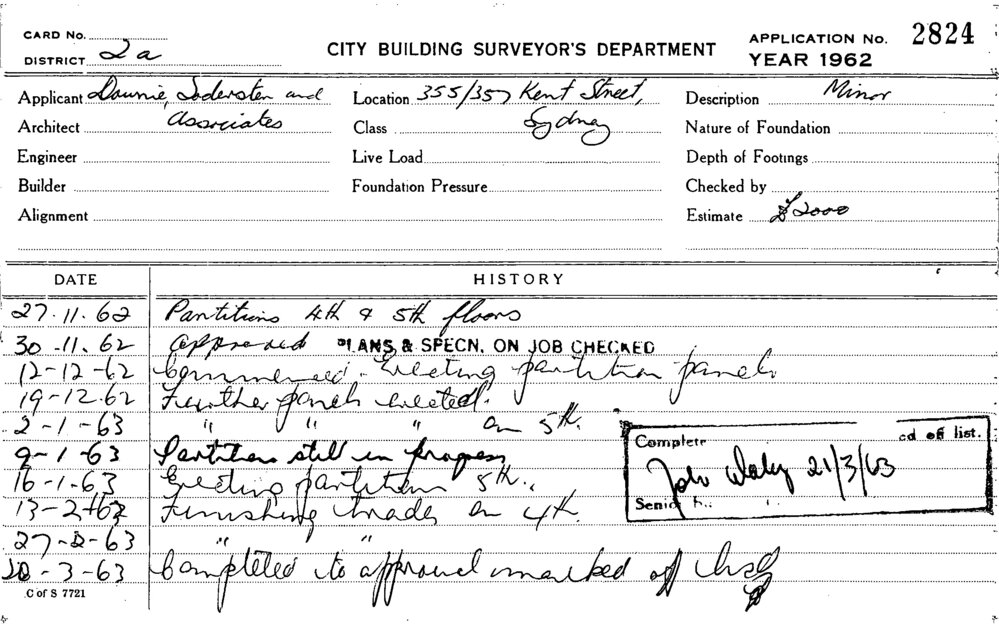 CARD No.
DISTRICT 2a
CITY BUILDING SURVEYOR'S DEPARTMENT
APPLICATION No. 2824
YEAR 1962
Applicant Downie, Sodersten and
Architect Associates
Engineer
Builder
Alignment
Location 355/357 Kent Street,
Class Sydney
Live Load
Foundation Pressure
Description Minor
Nature of Foundation
Depth of Footings
Checked by
Estimate £2000
DATE HISTORY
27.11.62 Partitions 4th & 5th floors
30.11.62 Approved PLANS & SPECN. ON JOB CHECKED
12-12-62 Commenced. Erecting partition panels
19-12.62 Further panels erected.
2-1-63 " " " on 5th.
9-1-63 Partitions still in progress
16-1-63 Erecting partitions 5th.
13-2-63 Finishing trades on 4th.
27-2-63 " "
20-3-63 Completed to approval marked off list
Complete ed off list.
John 21/3/63
Senior
C of S 7721